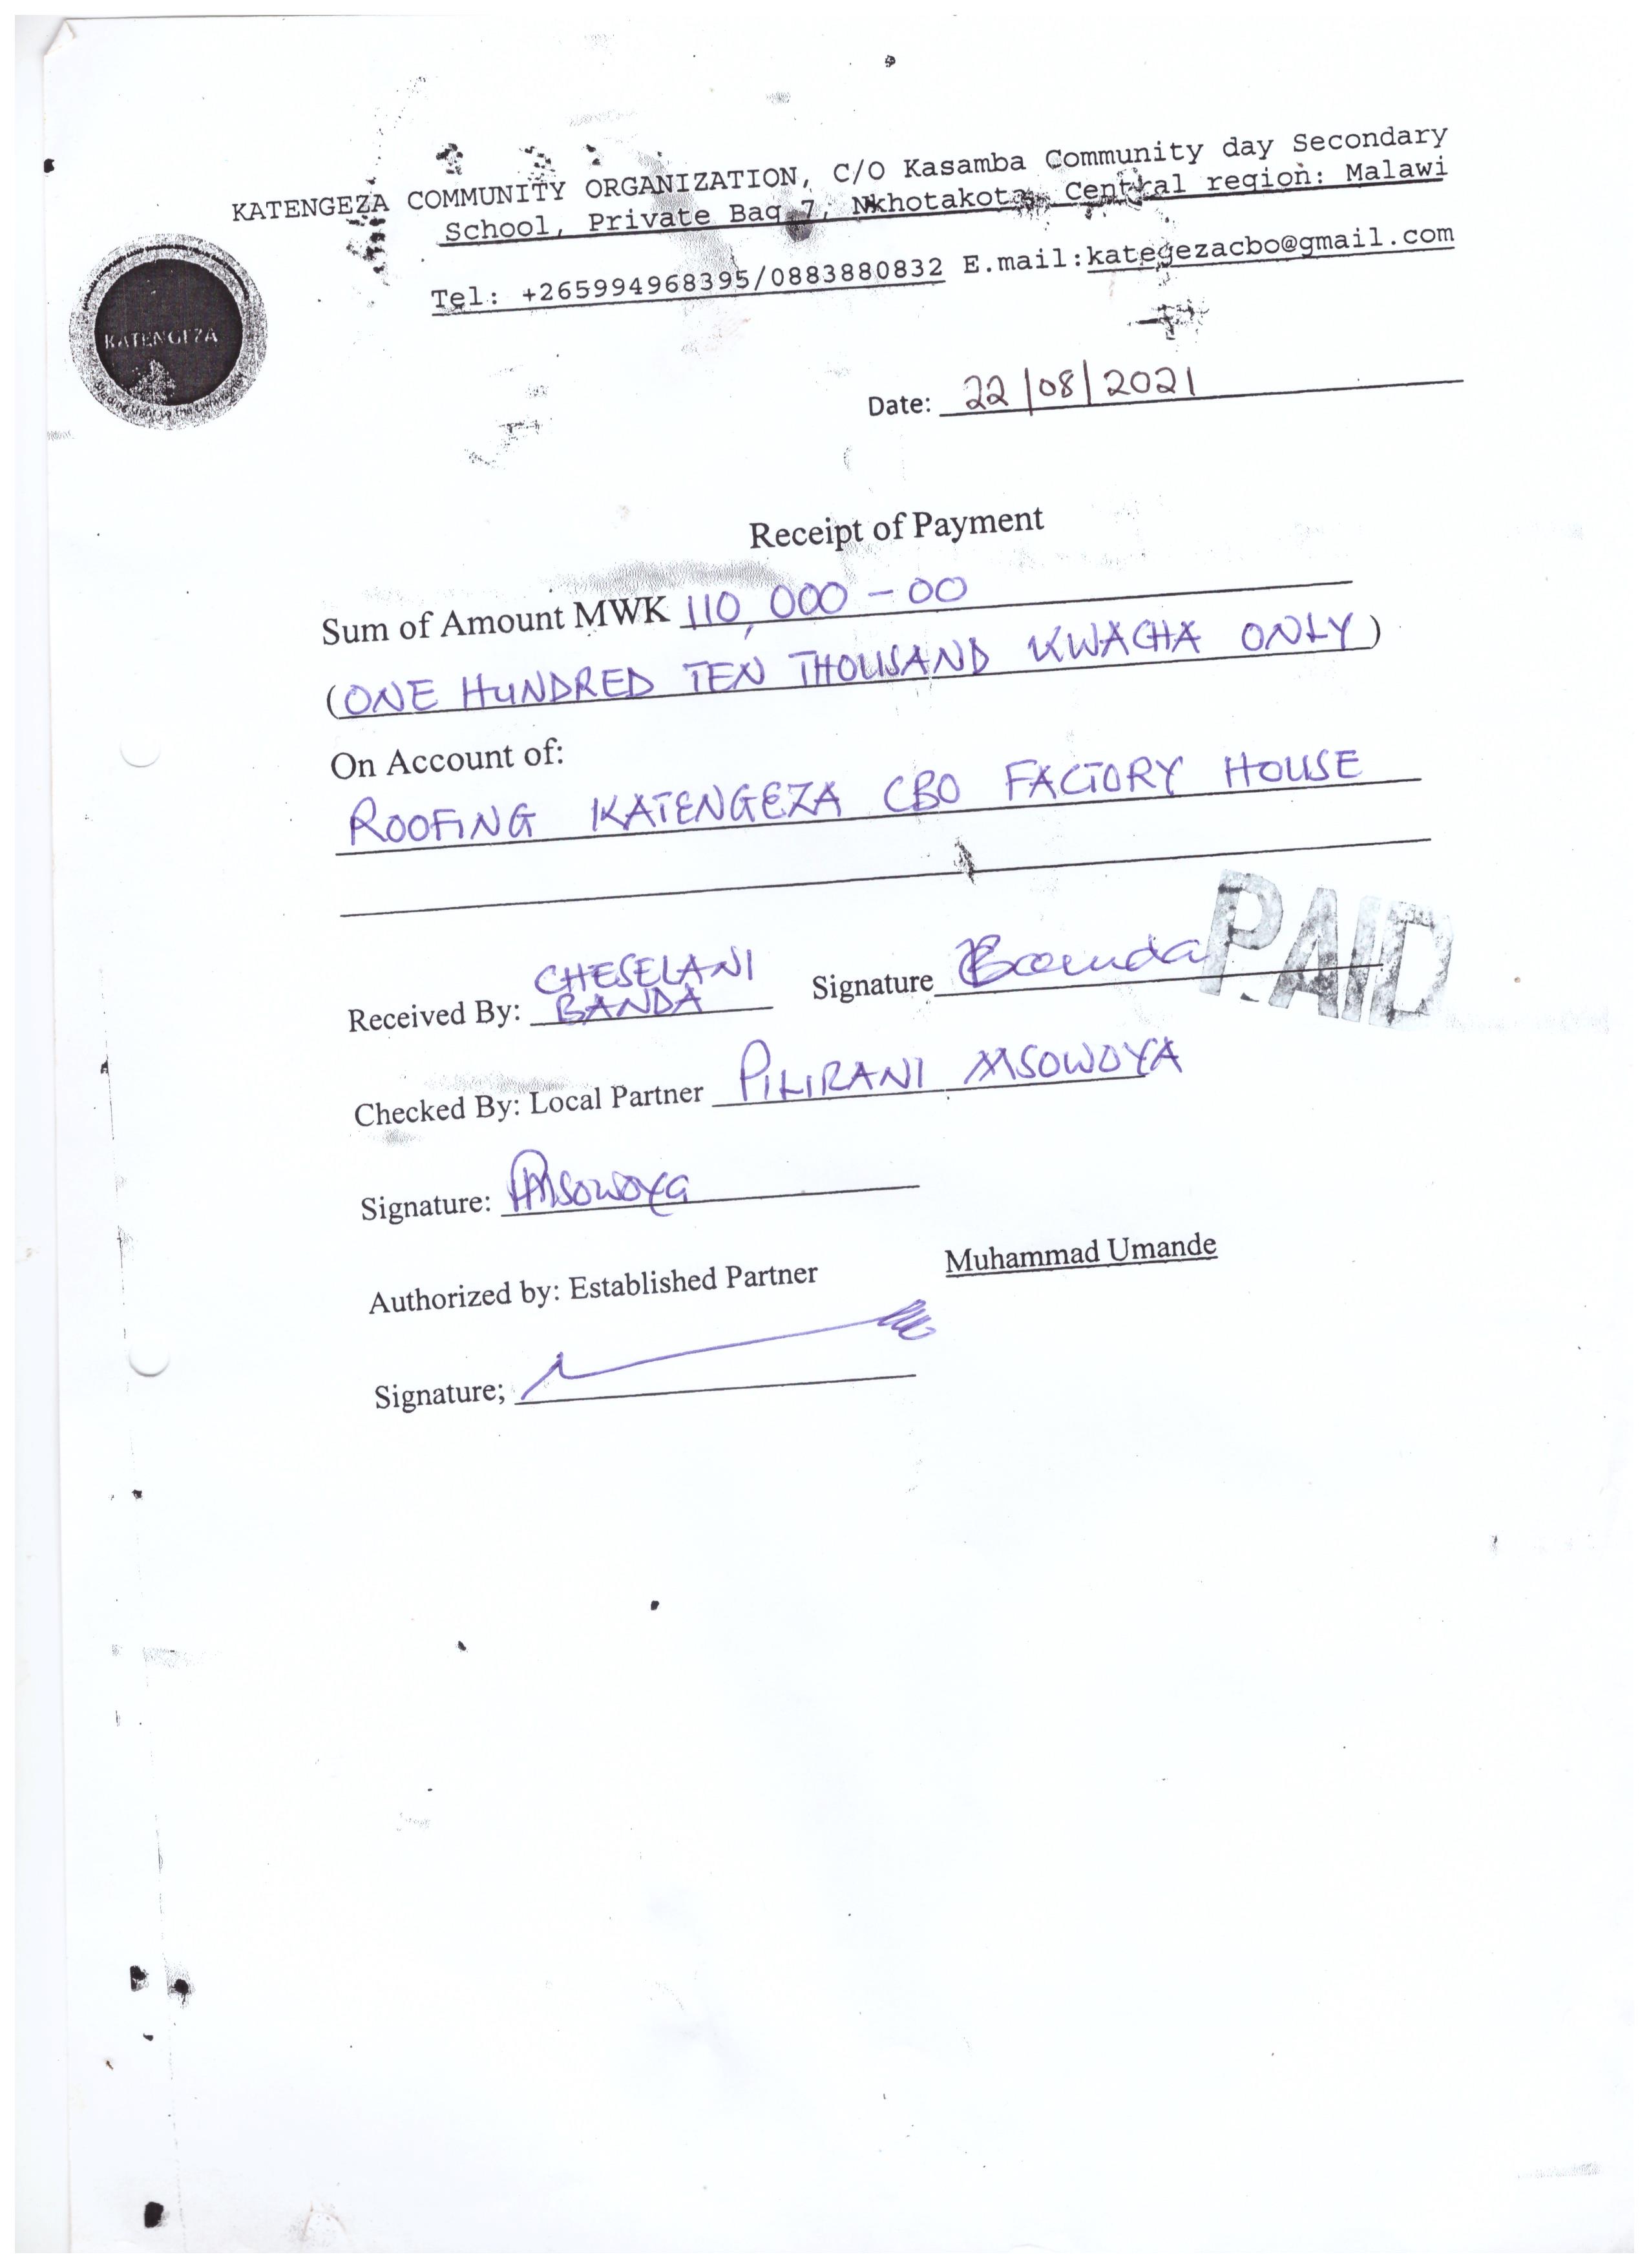 KATENGEZA COMMUNITY ORGANIZATION, C/O Kasamba Community day Secondary
School, Private Bag 7, Nkhotakota, Central region: Malawi
Tel: +265994968395/0883880832 E.mail:kategezacbo@gmail.com
KATENGEZA
Date: 22/08/2021
Receipt of Payment
Sum of Amount MWK 110,000-00
(ONE HUNDRED TEN THOUSAND KWACHA ONLY)
On Account of:
ROOFING KATENGEZA CBO FACTORY HOUSE
PAID
CHESELANI
Received By: BANDA Signature Banda
Checked By: Local Partner PILIRANI MSOWOYA
Signature: PMsowoya
Authorized by: Established Partner Muhammad Umande
Signature;